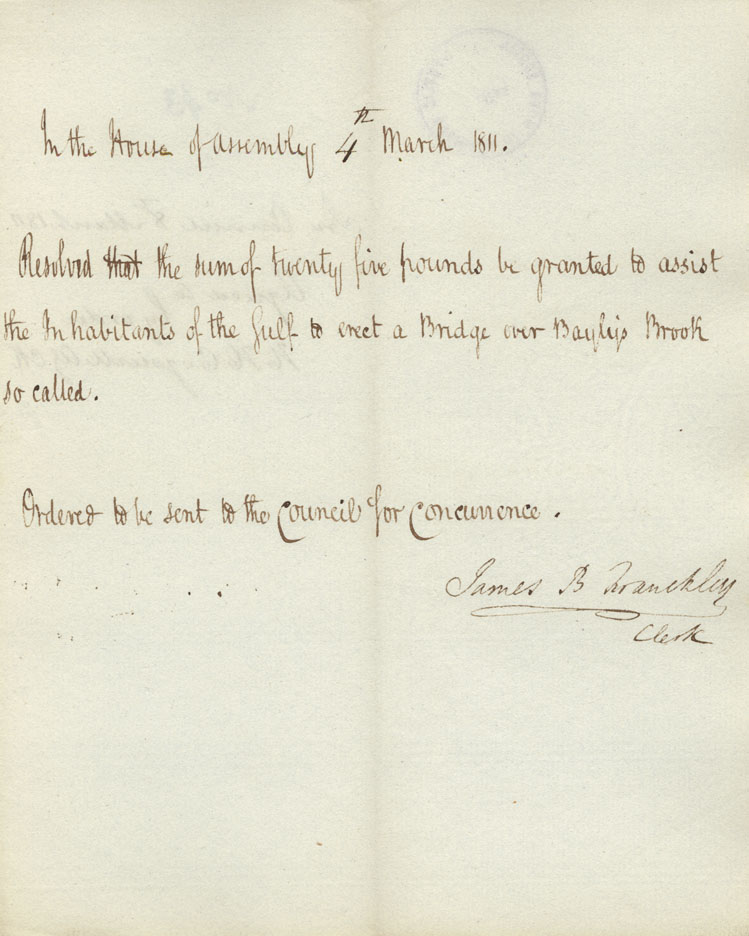 In the House of Assembly 4th March 1811.
Resolved that the sum of twenty five pounds be granted to assist
the Inhabitants of the Gulf to erect a Bridge over Baylys Brook
so called.
Ordered to be sent to the Council for Concurrence.
James B Franckley
Clerk